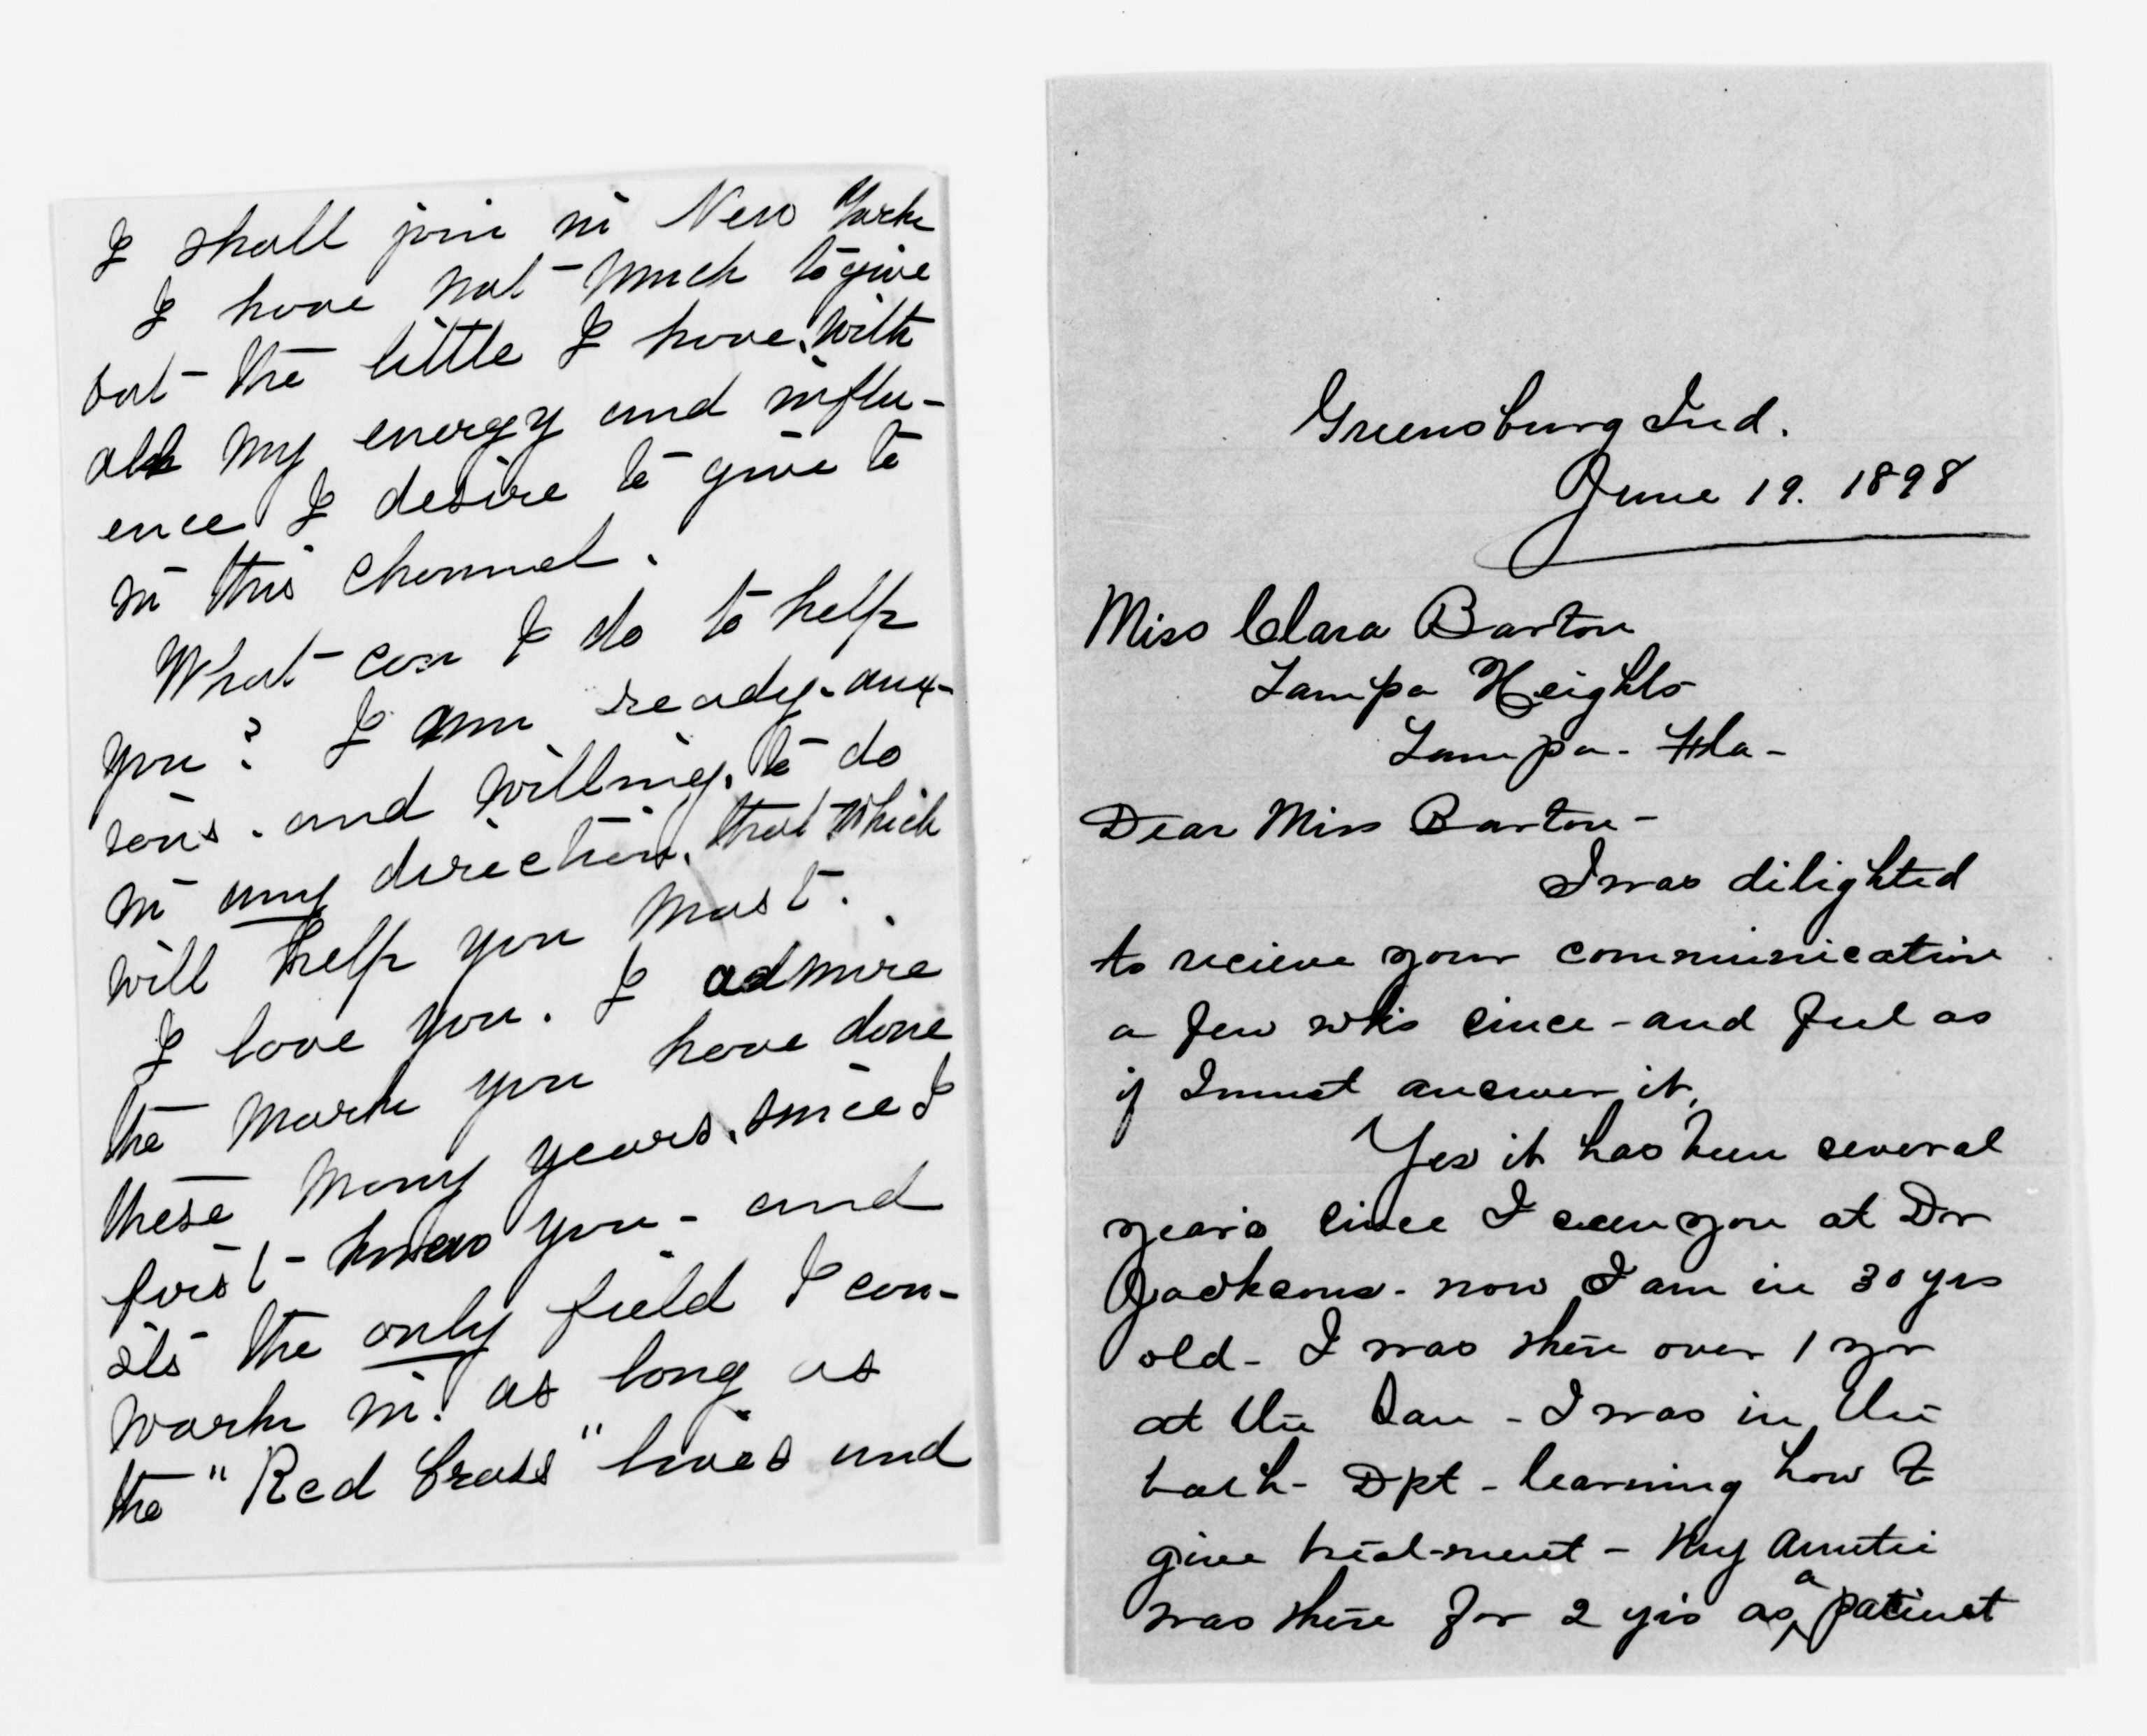 I shall join in New York
I have not much to give
but the little I have, with
all my energy and influ-
ence I desire to give to
in this channel.
What can I do to help
you? I am ready - anx-
ious - and willing, to do
in any direction, that which
will help you most.
I love you. I admire
the work you have done
these many years, since I
first knew you - and
its the only field I can
work in. as long as
the "Red Cross" lives and
Greensburg Ind.
June 19. 1898
Miss Clara Barton
Tampa Heights
Tampa - Fla -
Dear Miss Barton -
I was dilighted
to recieve your communication
a few wks since - and feel as
if I must answer it.
Yes it has been several
years since I seen you at Dr
Jacksons - now I am in 30 yrs
old - I was there over 1 yr
at the San - I was in the
bath - Dpt - learning how to
give treat-ment - My Auntie
was there for 2 yrs as a patient